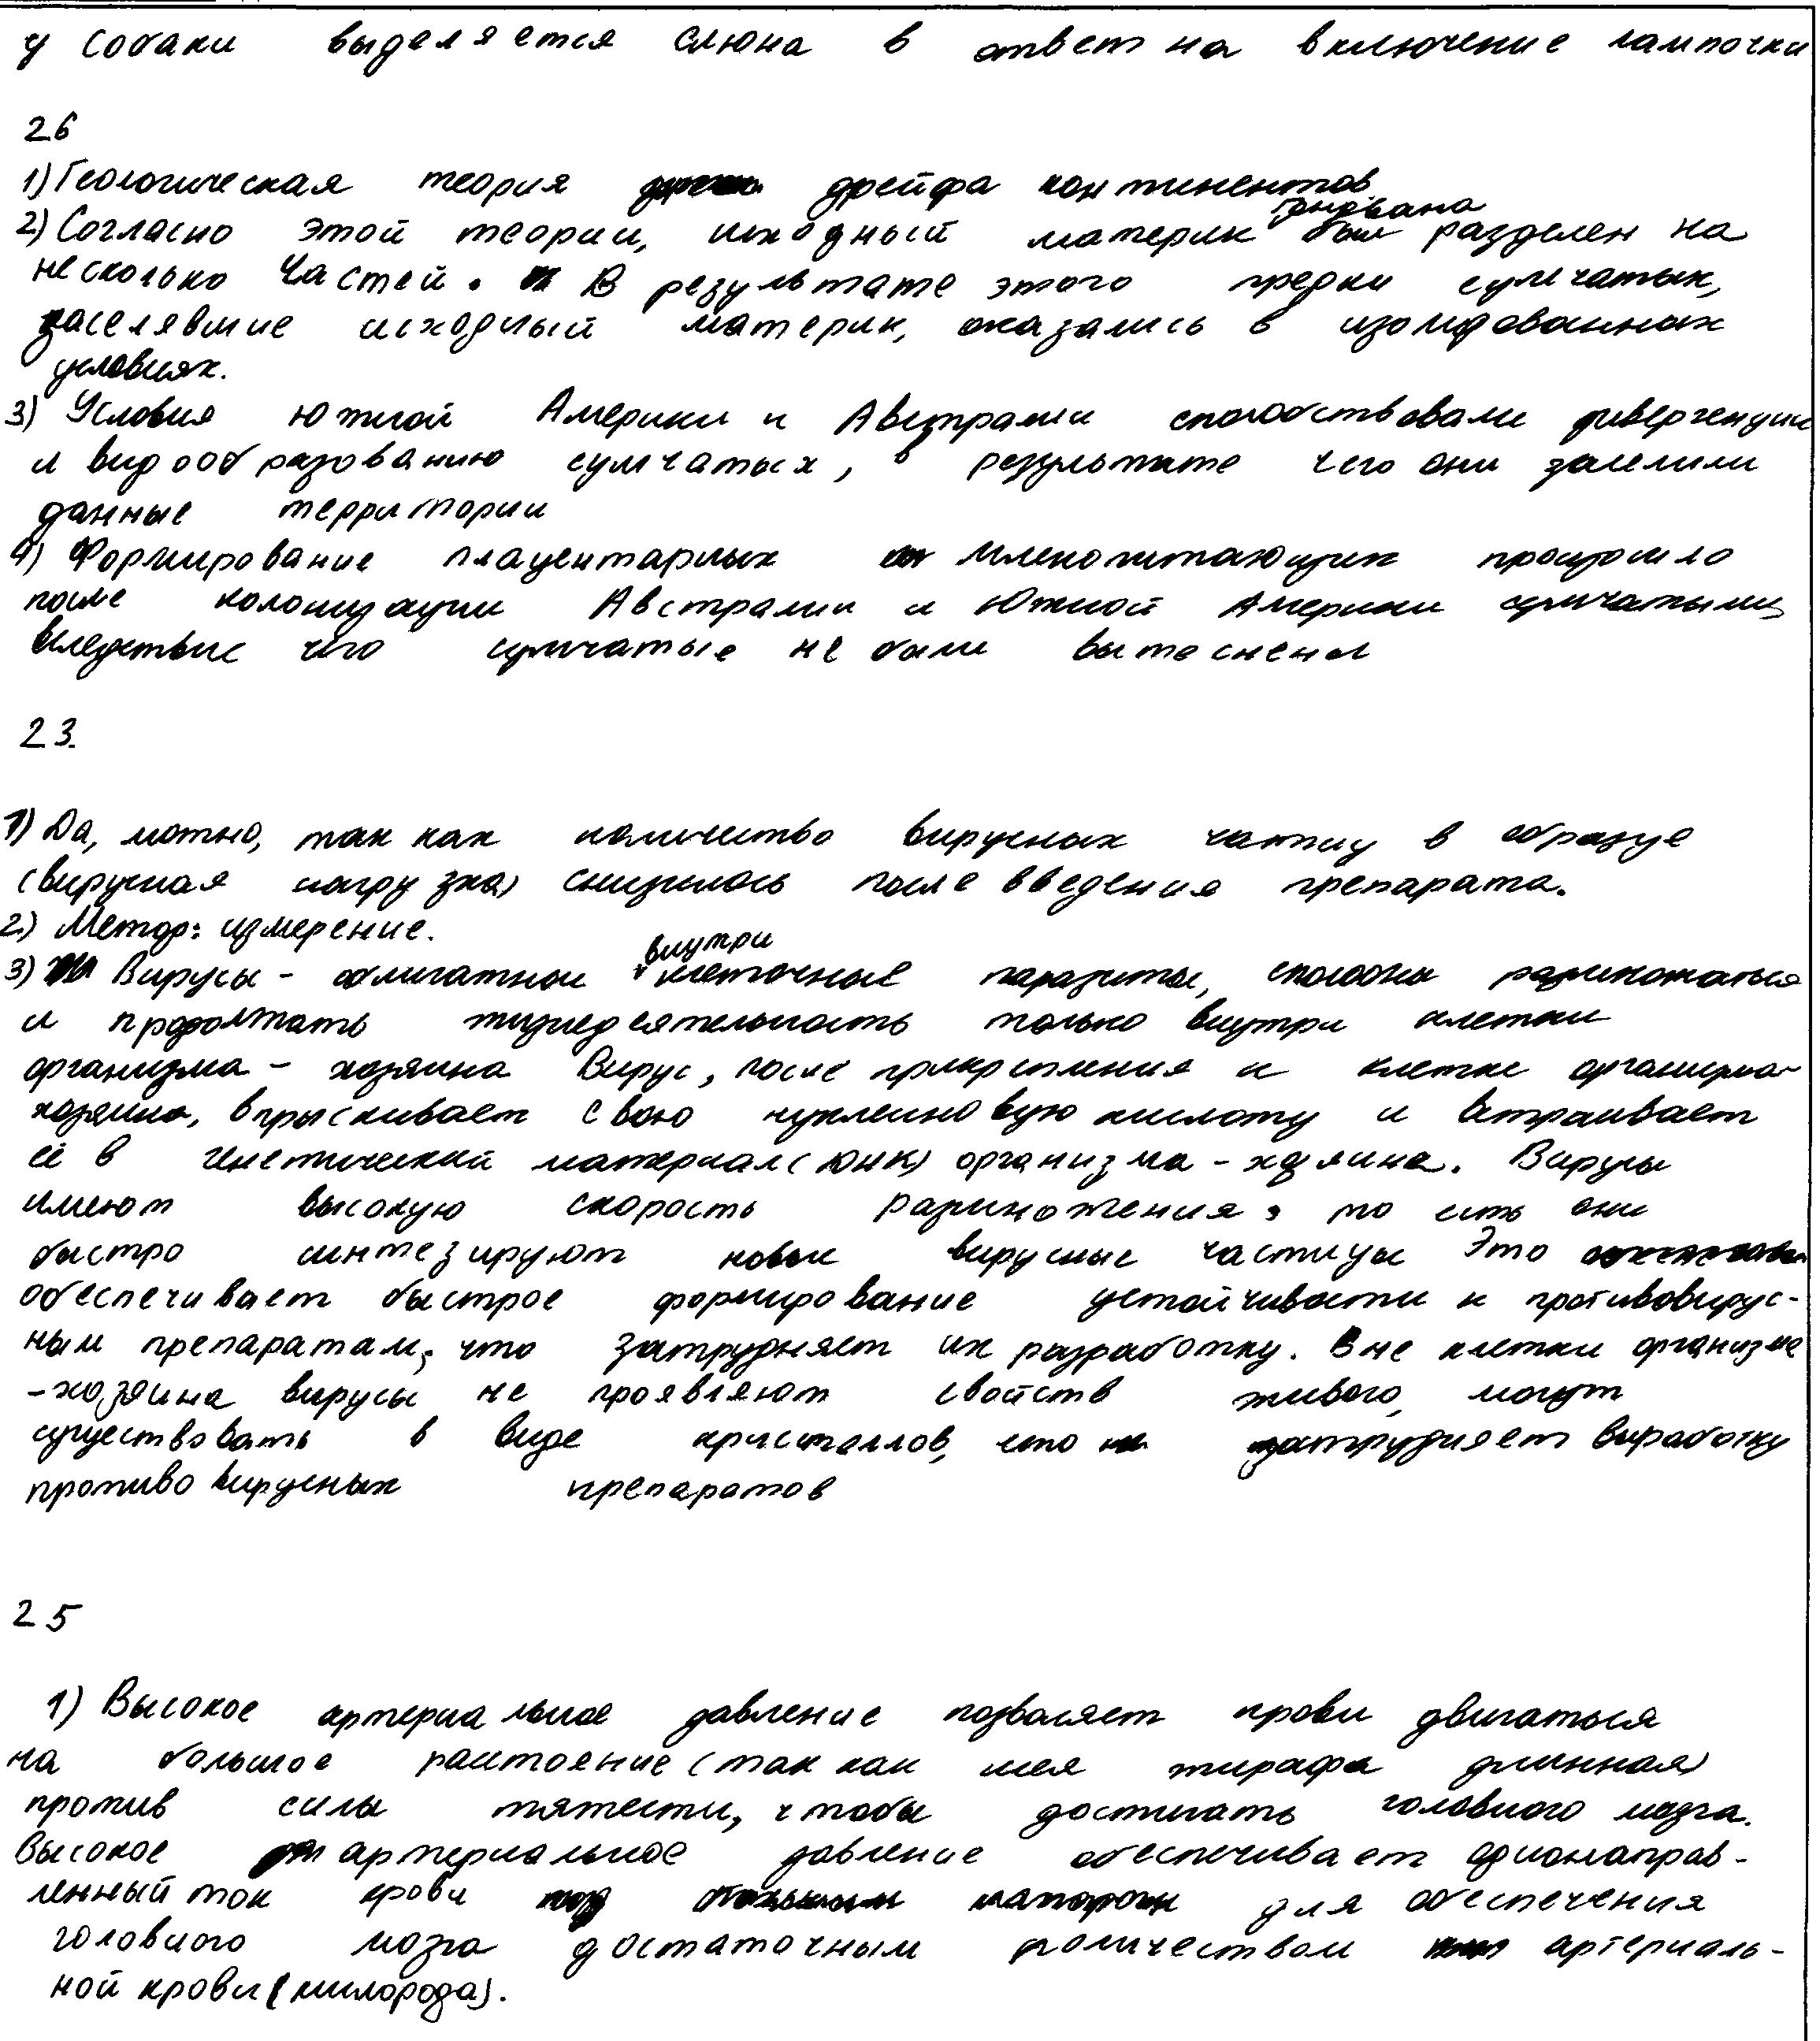 у собаки выделяется слюна в ответ на включение лампочки
26
1) Геологическая теория дрейфа континентов
2) Согласно этой теории, исходный материк Гондвана был разделен на
несколько частей. В результате этого предки сумчатых,
заселявшие исходный материк, оказались в изолированных
условиях.
3) Условия Южной Америки и Австралии способствовали дивергенции
и видообразованию сумчатых, в результате чего они заселили
данные территории
4) Формирование плацентарных млекопитающих произошло
после колонизации Австралии и Южной Америки сумчатыми,
вследствие чего сумчатые не были вытеснены
23.
1) Да, можно, так как количество вирусных частиц в образце
(вирусная нагрузка) снизилось после введения препарата.
2.) Метод: измерение.
3) Вирусы - облигатные внутриклеточные паразиты, способны размножаться
и продолжать жизнедеятельность только внутри клетки
организма - хозяина Вирус, после прикрепления к клетке организма-
хозяина, впрыскивает свою нуклеиновую кислоту и встраивает
её в генетический материал (ДНК) организма - хозяина. Вирусы
имеют высокую скорость размножения, то есть они
быстро синтезируют новые вирусные частицы Это
обеспечивает быстрое формирование устойчивости к противовирус-
ным препаратам, что затрудняет их разработку. Вне клетки организма
-хозяина вирусы не проявляют свойств живого, могут
существовать в виде кристаллов, что затрудняет выработку
противовирусных препаратов
25
1) Высокое артериальное давление позволяет крови двигаться
на большое расстояние (так как шея жирафа длинная)
против силы тяжести, чтобы достигать головного мозга.
Высокое артериальное давление обеспечивает однонаправ-
ленный ток крови для обеспечения
головного мозга достаточным количеством артериаль-
ной крови (кислорода).